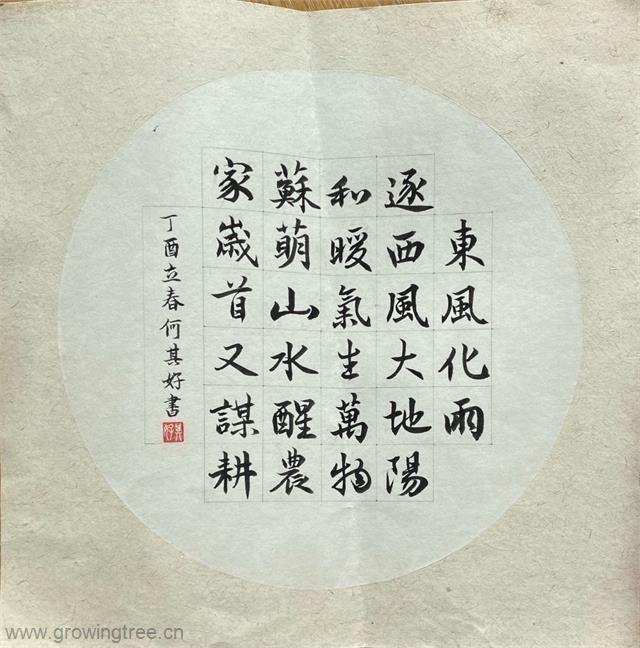 東風化雨
逐西風大地陽
和暖氣生萬物
蘇萌山水醒農
家歲首又謀耕
丁酉立春何其好書
www.growingtree.cn